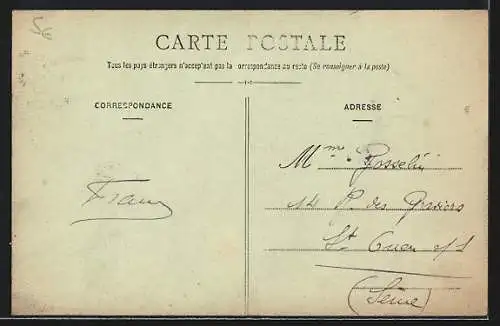 5€
CARTE POSTALE
Tous les pays étrangers n'acceptent pas la correspondance au recto (Se renseigner à la poste)
CORRESPONDANCE
ADRESSE
Mme Gosselin
14 R. des Graviers
St Ouen s/S
(Seine)